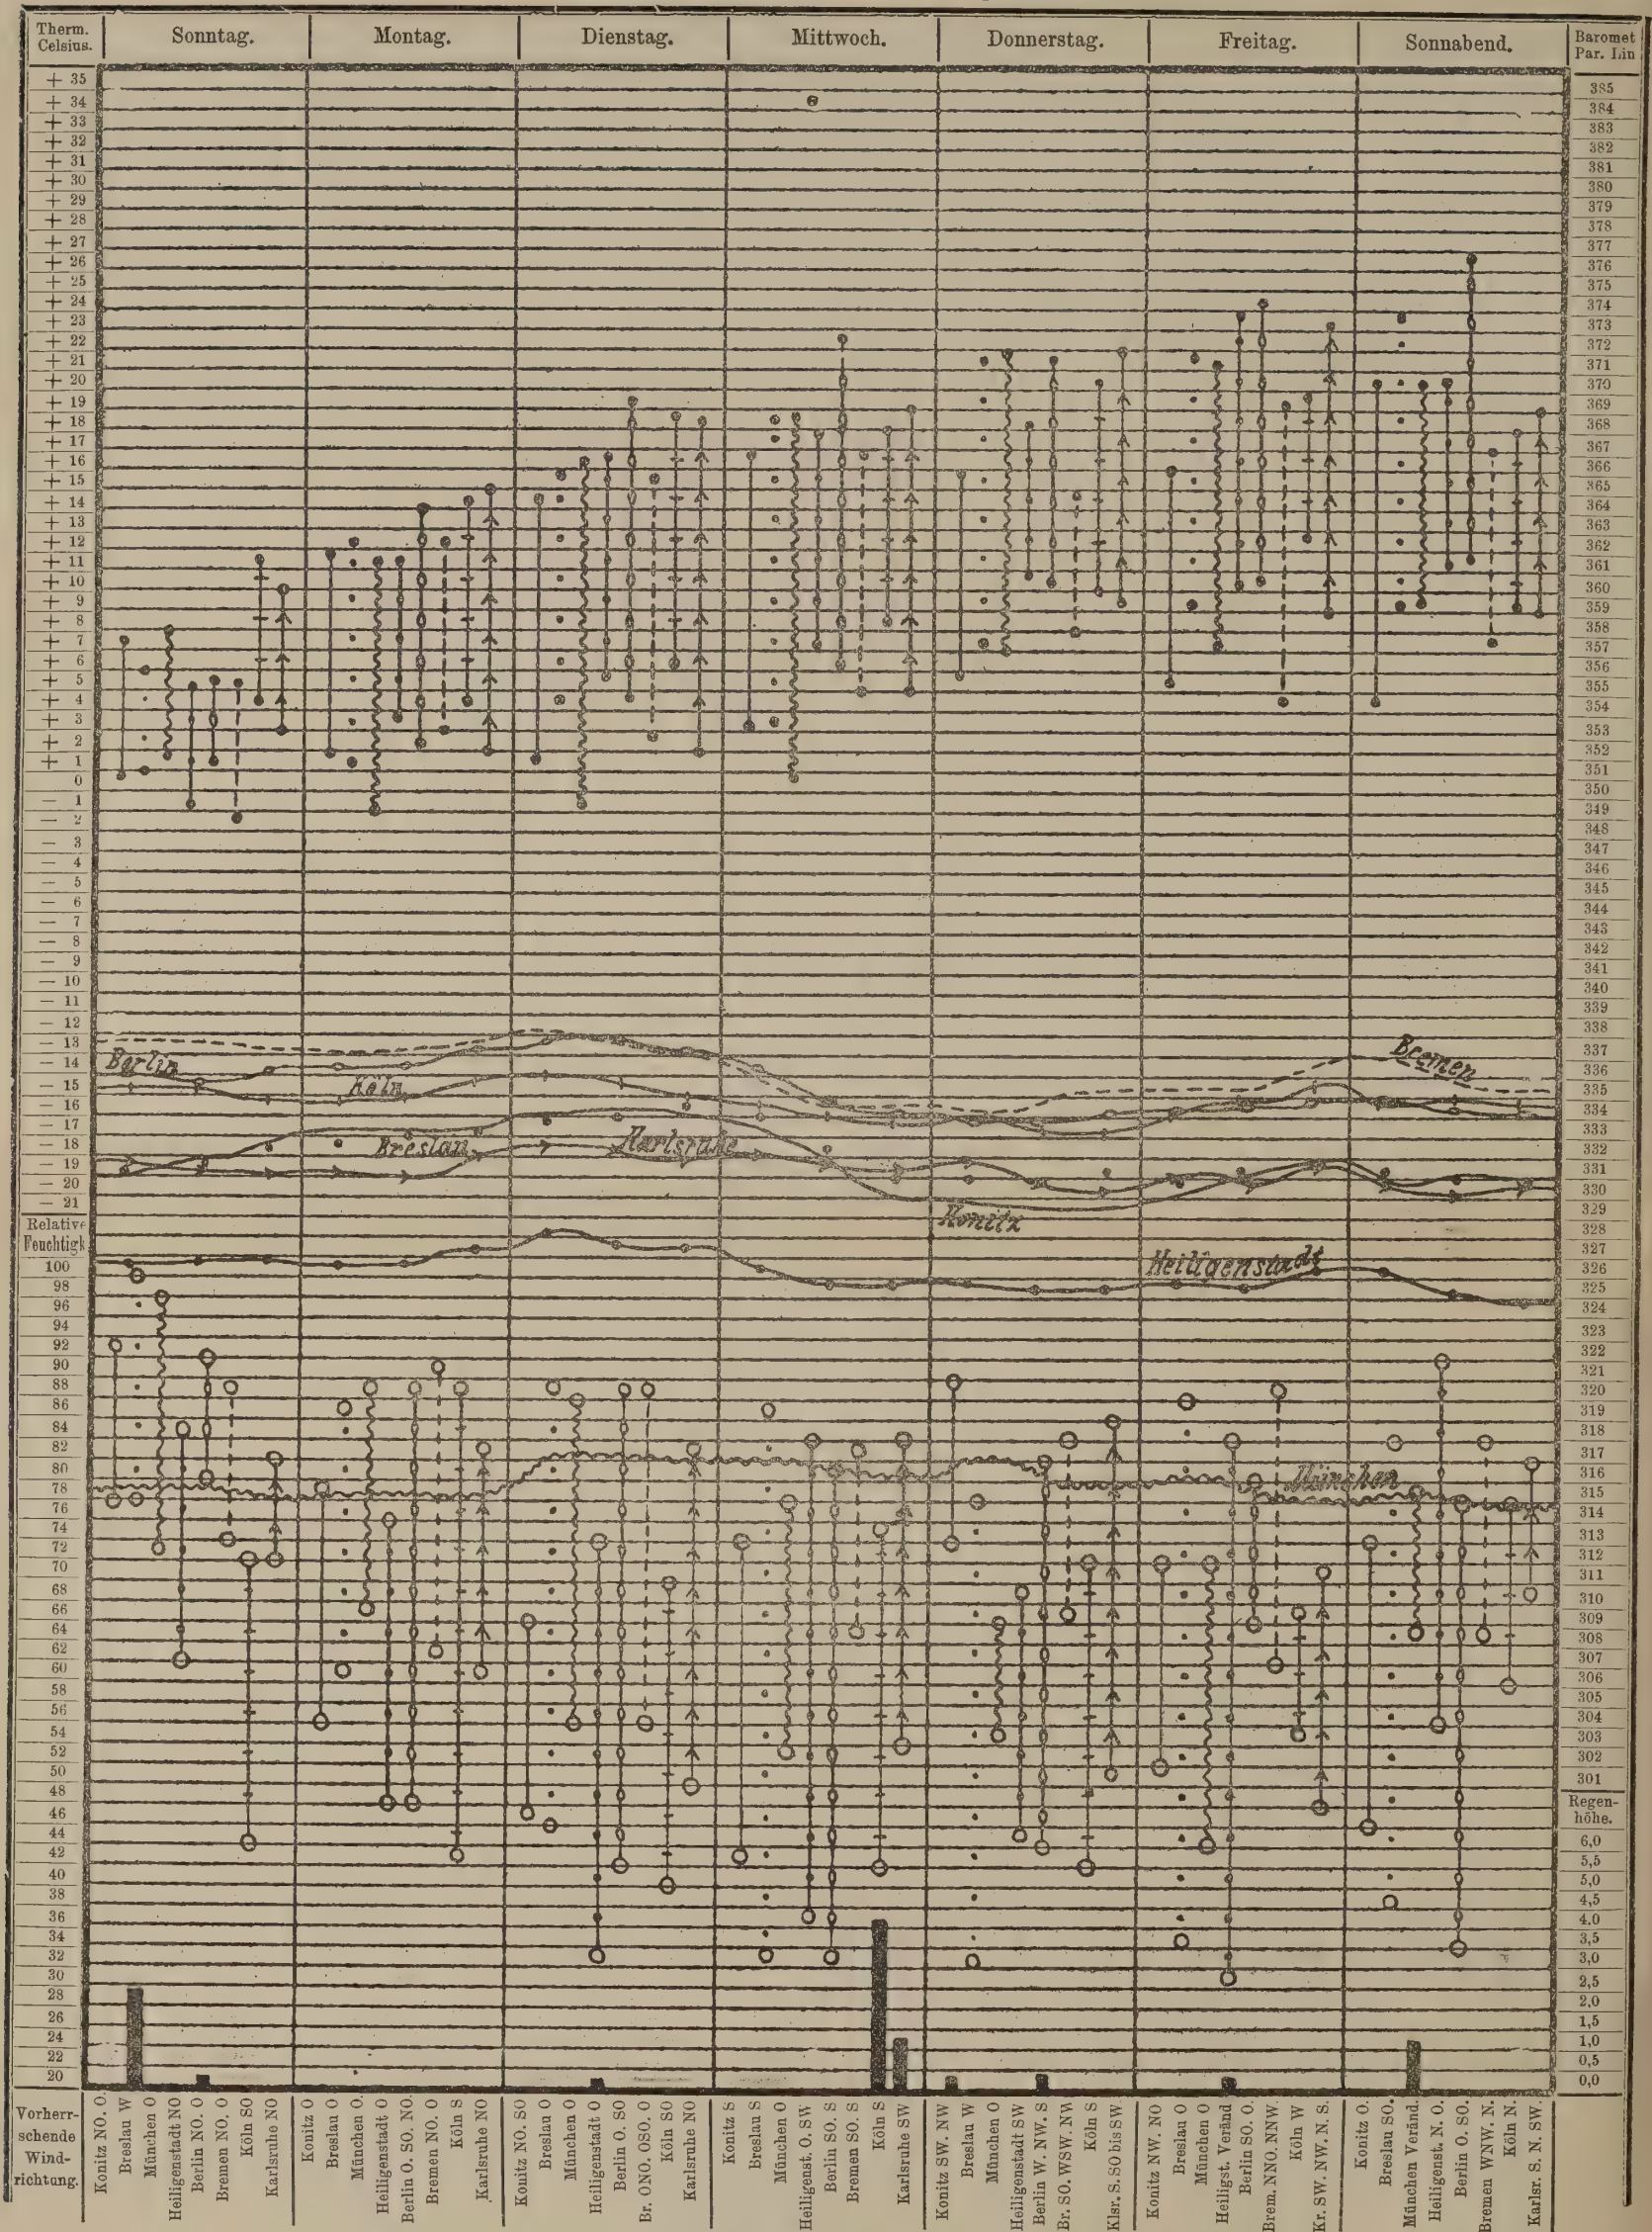 Therm. Celsius.
Sonntag.
Montag.
Dienstag.
Mittwoch.
Donnerstag.
Freitag.
Sonnabend.
Baromet
Par. Lin
+ 35
+ 34
+ 33
+ 32
+ 31
+ 30
+ 29
+ 28
+ 27
+ 26
+ 25
+ 24
+ 23
+ 22
+ 21
+ 20
+ 19
+ 18
+ 17
+ 16
+ 15
+ 14
+ 13
+ 12
+ 11
+ 10
+ 9
+ 8
+ 7
+ 6
+ 5
+ 4
+ 3
+ 2
+ 1
0
— 1
— 2
— 3
— 4
— 5
— 6
— 7
— 8
— 9
— 10
— 11
— 12
— 13
— 14
— 15
— 16
— 17
— 18
— 19
— 20
— 21
Relative
Feuchtigk
100
98
96
94
92
90
88
86
84
82
80
78
76
74
72
70
68
66
64
62
60
58
56
54
52
50
48
46
44
42
40
38
36
34
32
30
28
26
24
22
20
385
384
383
382
381
380
379
378
377
376
375
374
373
372
371
370
369
368
367
366
365
364
363
362
361
360
359
358
357
356
355
354
353
352
351
350
349
348
347
346
345
344
343
342
341
340
339
338
337
336
335
334
333
332
331
330
329
328
327
326
325
324
323
322
321
320
319
318
317
316
315
314
313
312
311
310
309
308
307
306
305
304
303
302
301
Regen-
höhe.
6,0
5,5
5,0
4,5
4,0
3,5
3,0
2,5
2,0
1,5
1,0
0,5
0,0
Berlin
Köln
Breslau
Karlsruhe
Bremen
Konitz
Heiligenstadt
München
Vorherr-
schende
Wind-
richtung.
Konitz NO. O.
Breslau W
München O
Heiligenstadt NO
Berlin NO. O
Bremen NO. O
Köln SO
Karlsruhe NO
Konitz O
Breslau O
München O.
Heiligenstadt O
Berlin O. SO. NO.
Bremen NO. O
Köln S
Karlsruhe NO
Konitz NO. SO
Breslau O
München O
Heiligenstadt O
Berlin O. SO
Br. ONO. OSO. O
Köln SO
Karlsruhe NO
Konitz S
Breslau S
München O
Heiligenst. O. SW
Berlin SO. S
Bremen SO. S
Köln S
Karlsruhe SW
Konitz SW. NW
Breslau W
München O
Heiligenstadt SW
Berlin W. NW. S
Br. SO. WSW. NW
Köln S
Klsr. S. SO bis SW.
Konitz NW. NO
Breslau O
München O
Heiligst. Veränd
Berlin SO. O.
Brem. NNO. NNW.
Köln W
Kr. SW. NW. N. S.
Konitz O.
Breslau SO.
München Veränd.
Heiligenst. N. O.
Berlin O. SO.
Bremen WNW. N.
Köln N.
Karlsr. S. N. SW.